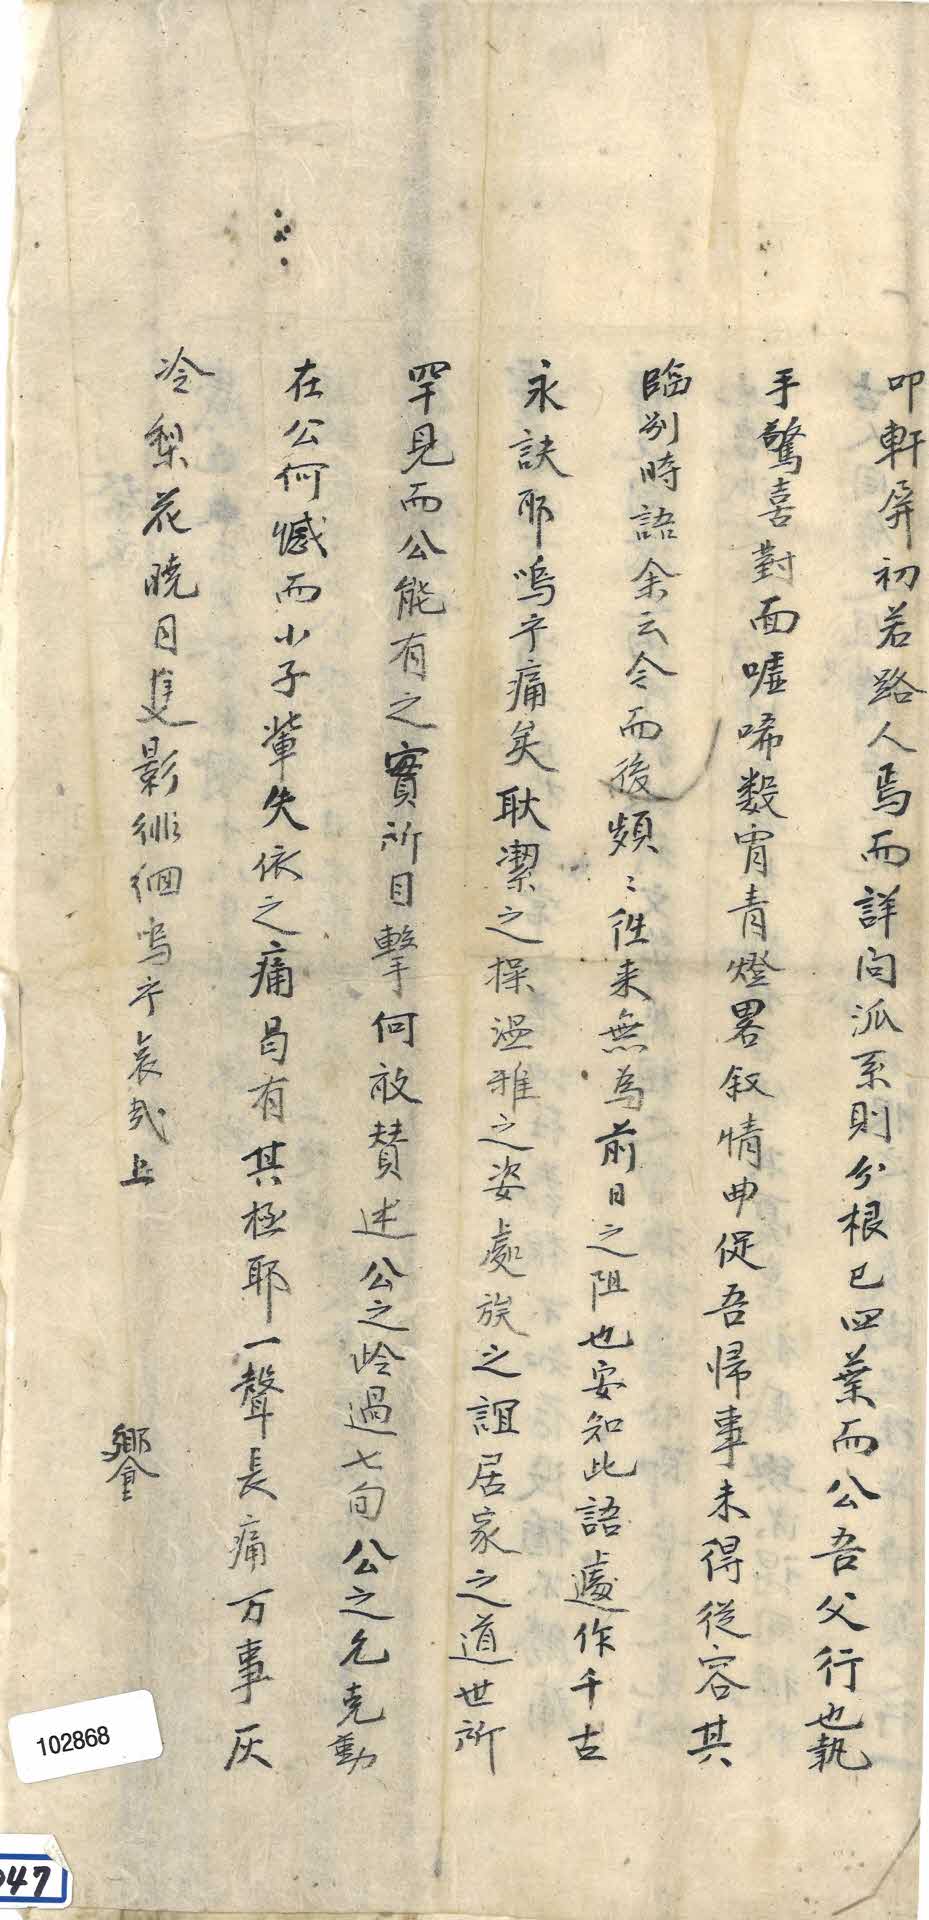 叩軒屏初若路人焉而詳問派系則分根已四葉而公吾父行也執
手驚喜對面噓唏數宵青燈畧叙情曲促吾歸事未得從容其
臨別時語余云今而後頻〻徃来無為前日之阻也安知此語遽作千古
永訣耶嗚乎痛矣耿潔之操溫雅之姿處族之誼居家之道世所
罕見而公能有之實所目擊何敢賛述公之岭過七旬公之允克勤
在公何憾而小子輩失依之痛曷有其極耶一聲長痛万事灰
冷梨花曉日隻影徘徊嗚乎哀哉上
饗
102868
047